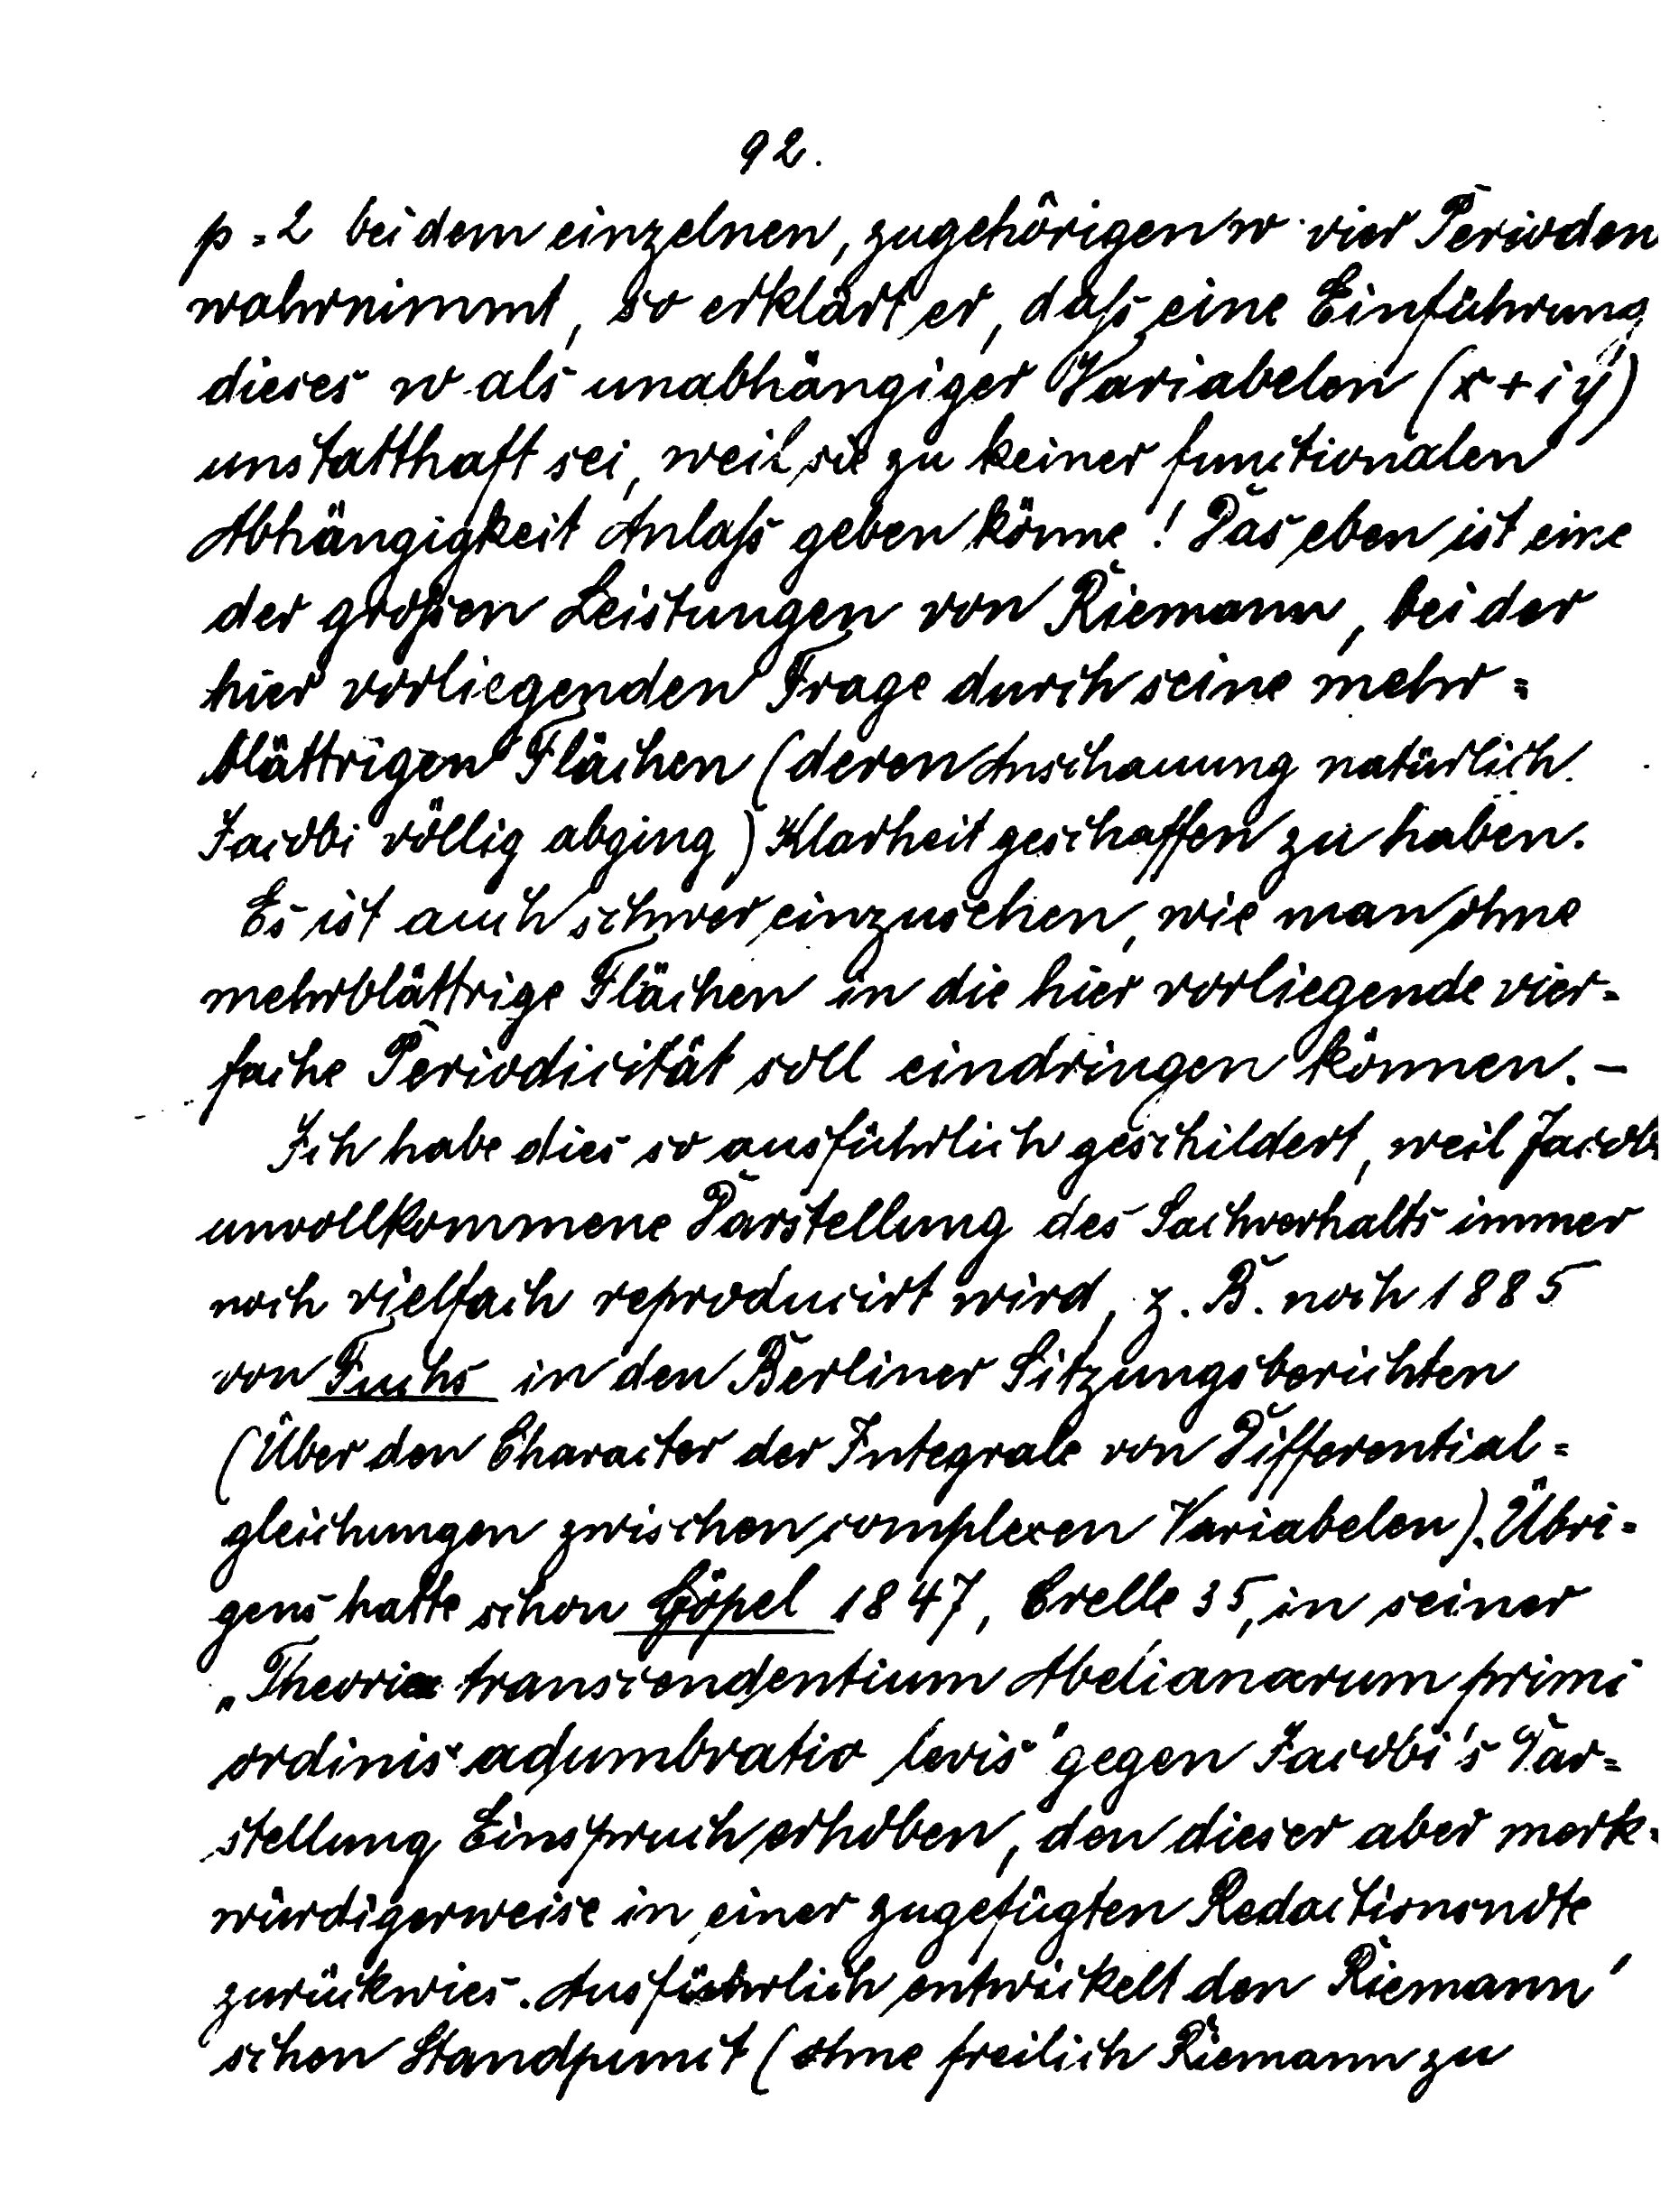 92.
p = 2 bei dem einzelnen, zugehörigen w vier Perioden
wahrnimmt, so erklärt er, daſs eine Einführung
dieses w als unabhängiger Variabelen (x + i y)
unstatthaft sei, weil sie zu keiner functionalen
Abhängigkeit Anlaſs geben könne! Das eben ist eine
der groſsen Leistungen von Riemann, bei der
hier vorliegenden Frage durch seine mehr=
blättrigen Flächen (deren Anschauung natürlich
Jacobi völlig abging) Klarheit geschaffen zu haben.
Es ist auch schwer einzusehen, wie man ohne
mehrblättrige Flächen in die hier vorliegende vier-
fache Periodicität soll eindringen können. –
Ich habe dies so ausführlich geschildert, weil Jacobi
unvollkommene Darstellung des Sachverhalts immer
noch vielfach reproducirt wird, z. B. noch 1885
von Fuchs in den Berliner Sitzungsberichten
(Über den Character der Integrale von Differential=
gleichungen zwischen complexen Variabelen). Übri=
gens hatte schon Göpel 1847, Crelle 35, in seiner
„Theoriae transcendentium Abelianarum primi
ordinis adumbratio levis" gegen Jacobi's Dar=
stellung Einspruch erhoben, den dieser aber merk-
würdigerweise in einer zugefügten Redactionsnote
zurückwies. Ausführlich entwickelt den Riemann'
schen Standpunct (ohne freilich Riemann zu